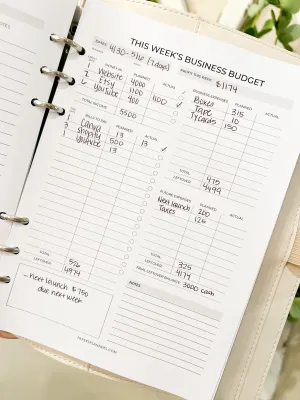 THIS WEEK'S BUSINESS BUDGET
DATES: 4/30-5/6 (7 days)
$1174
INCOME
PLANNED
ACTUAL
1 Website 4000
2 Etsy 1100 1100 ✓
6 YouTube 400
TOTAL INCOME 5500
BILLS TO PAY
PLANNED
ACTUAL
1 Canva 13 13 ✓
3 Shopify 500
YouTube 13
TOTAL 526
LEFTOVER 4974
BUSINESS EXPENSES
PLANNED
ACTUAL
Boxes 315
Tape 10
Ty cards 150
TOTAL 475
LEFTOVER 4499
PLANNED
ACTUAL
Next launch 200
Taxes 125
TOTAL 325
LEFTOVER 4174
FINAL LEFTOVER/BALANCE: 3000 cash
→ next launch $750
due next week
NOTES